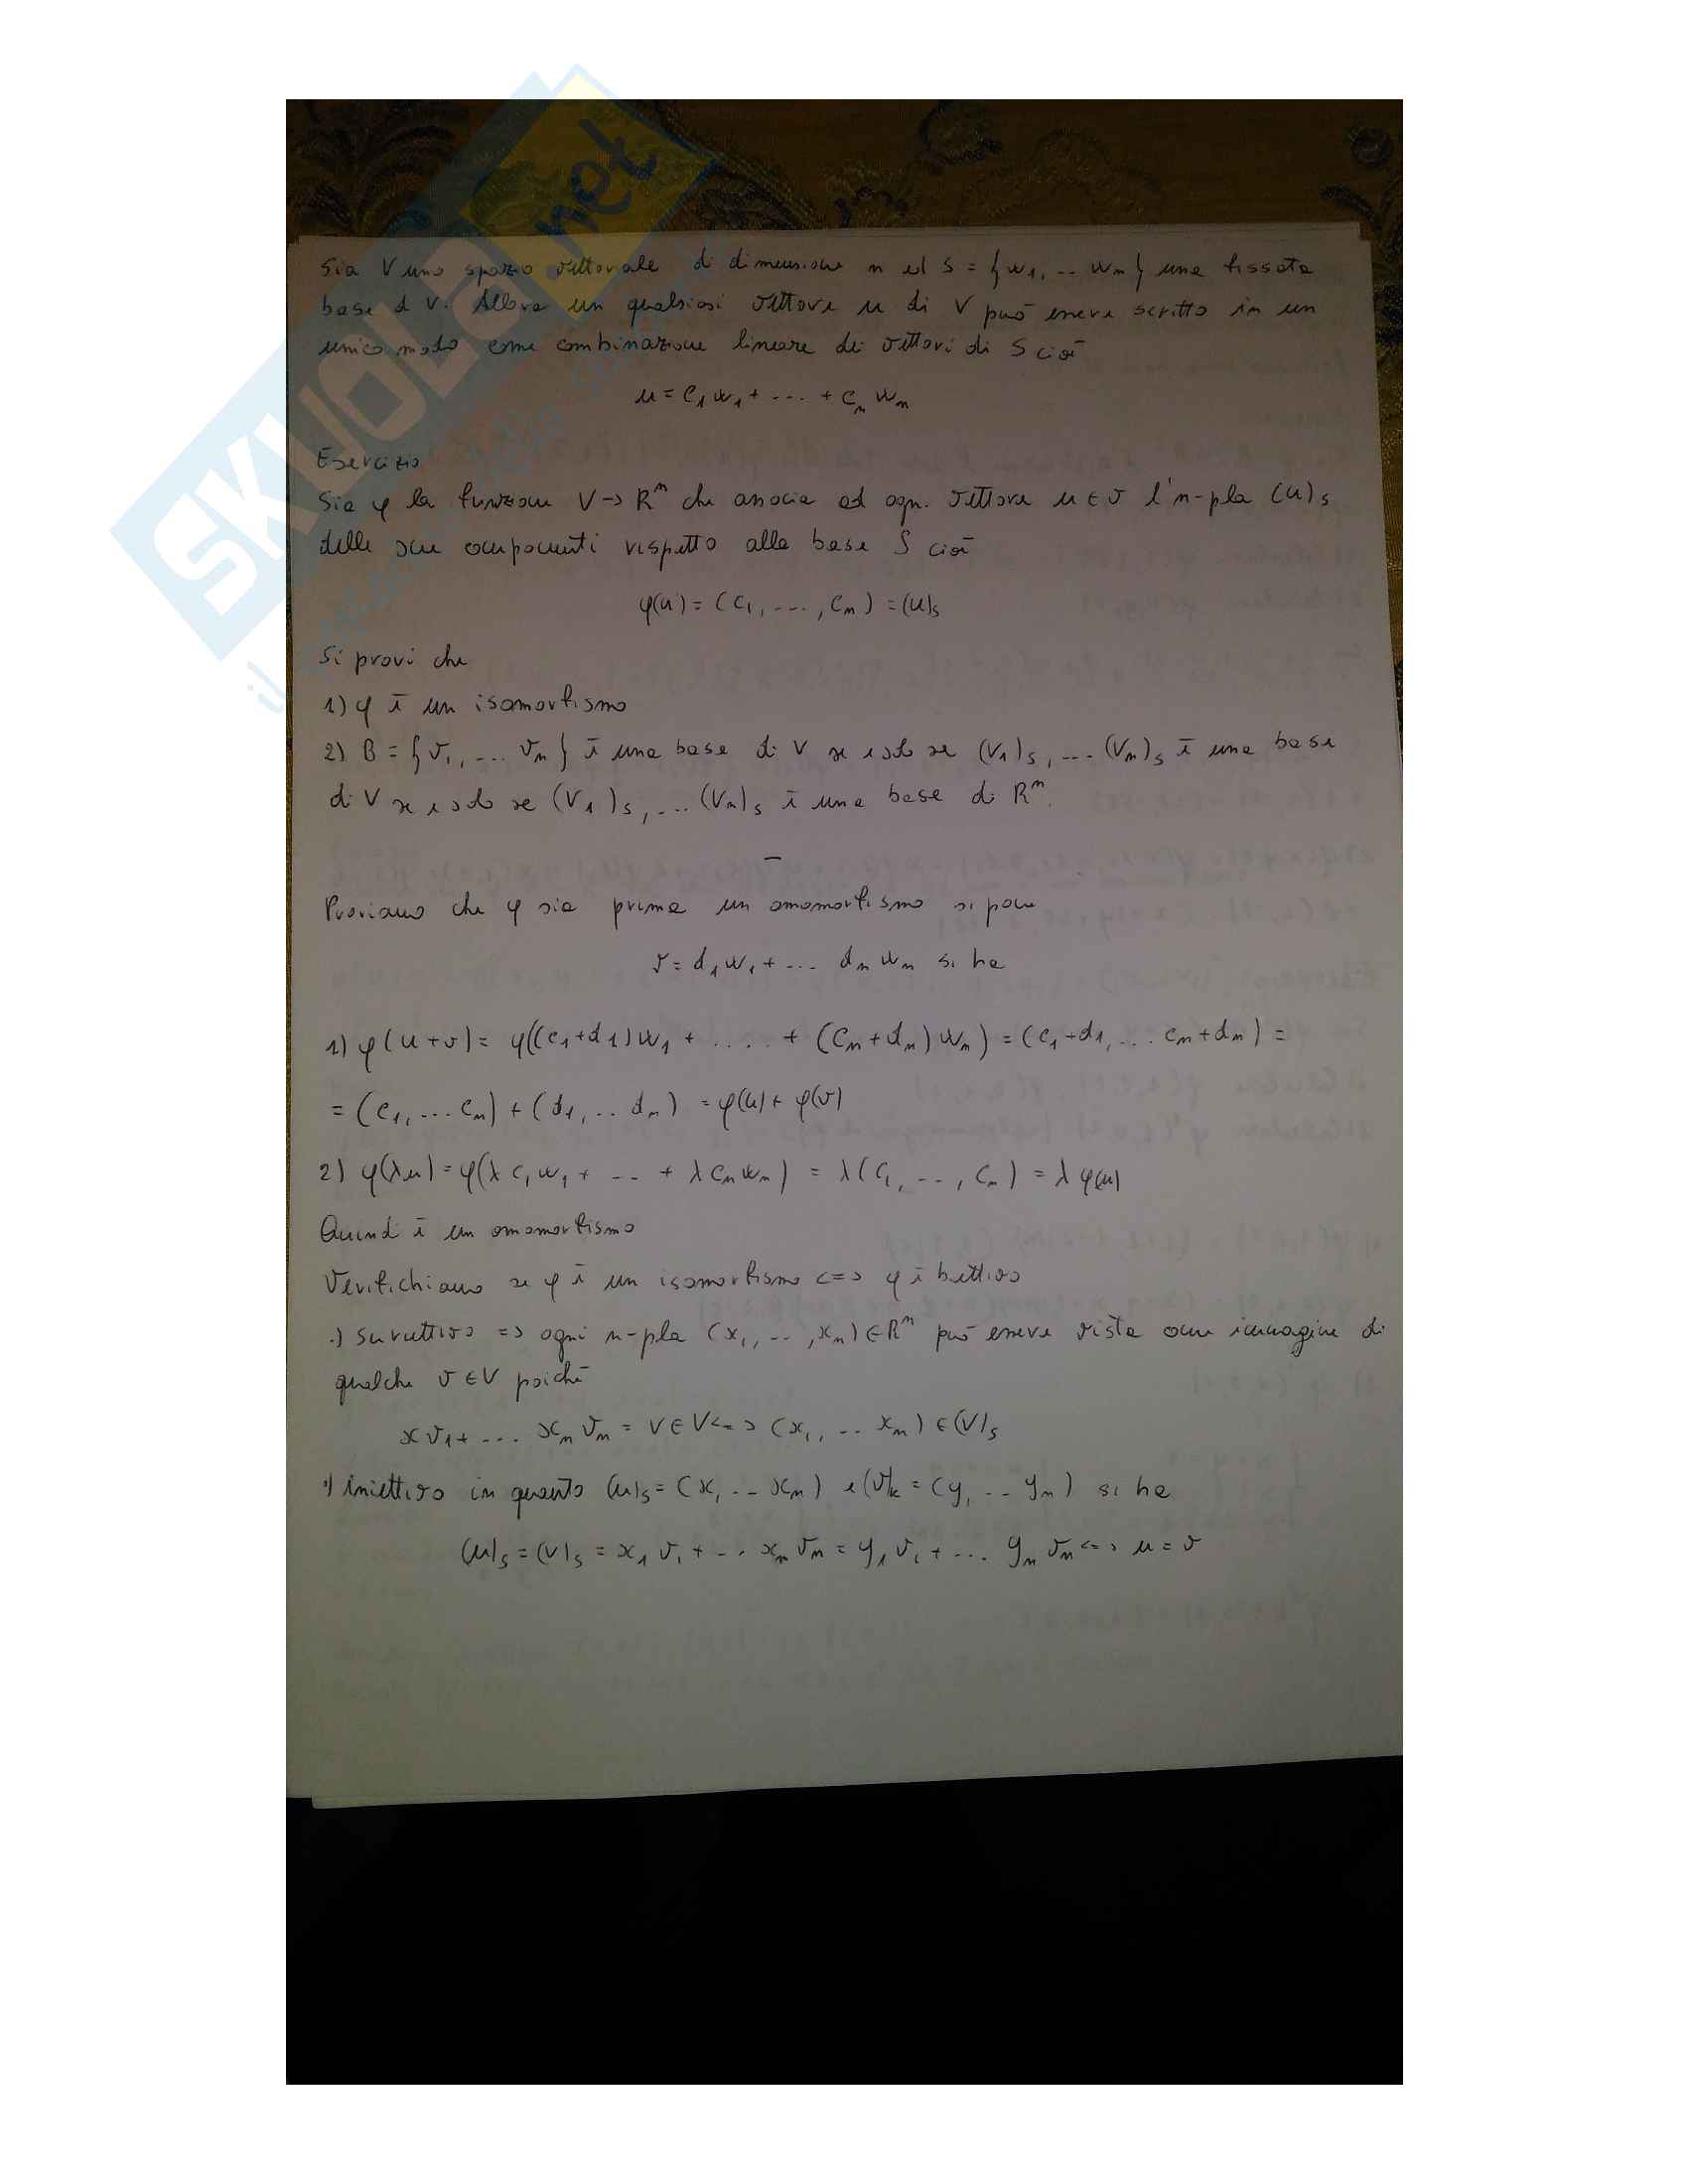 SKUOLA.net
Sia V uno spazio vettoriale di dimensione n ed S = {w1, .. wn} una fissata
base d V. Allora un qualsiasi vettore u di V può essere scritto in un
unico modo come combinazione lineare dei vettori di S cioè
u = c1 w1 + .... + cn wn
Esercizio
Sia φ la funzione V -> R^n che associa ad ogni vettore u ∈ v l'n-pla (u)s
delle sue componenti rispetto alla base S cioè
φ(u) = (c1, ..., cn) = (u)s
Si provi che
1) φ è un isomorfismo
2) B = {v1, ... vn} è una base di V se e solo se (v1)s, ... (vn)s è una base
di V se e solo se (v1)s, ... (vn)s è una base di R^n.
–
Proviamo che φ sia prima un omomorfismo si pone
v = d1 w1 + ... dn wn si ha
1) φ(u+v) = φ((c1+d1)w1 + .... + (cn+dn)wn) = (c1+d1, ... cn+dn) =
= (c1, ... cn) + (d1, .. dn) = φ(u) + φ(v)
2) φ(λu) = φ(λ c1 w1 + ... + λ cn wn) = λ(c1, ..., cn) = λ φ(u)
Quindi è un omomorfismo
Verifichiamo se φ è un isomorfismo <=> φ è biettivo
.) suriettivo => ogni n-pla (x1, .., xn) ∈ R^n può essere vista come immagine di
qualche v ∈ V poichè
x v1 + ... xn vn = v ∈ V <=> (x1, .. xn) ∈ (v)s
.) iniettivo in quanto (u)s = (x1 ... xn) e (v)k = (y1 ... yn) si ha
(u)s = (v)s = x1 v1 + ... xn vn = y1 v1 + ... yn vn <=> u = v